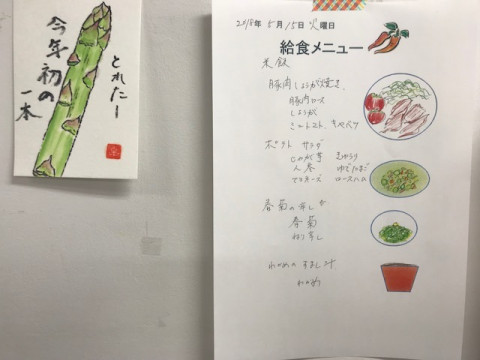 とれたー
今年初の
一本
2018年 5月 15日 火曜日
給食メニュー
米飯
豚肉しょうが焼き
豚肉ロース
しょうが
ミニトマト キャベツ
ポテト サラダ
じゃが芋 きゅうり
人参 ゆでたまご
マヨネーズ ロースハム
春菊の
春菊
わかめのすまし汁
わかめ